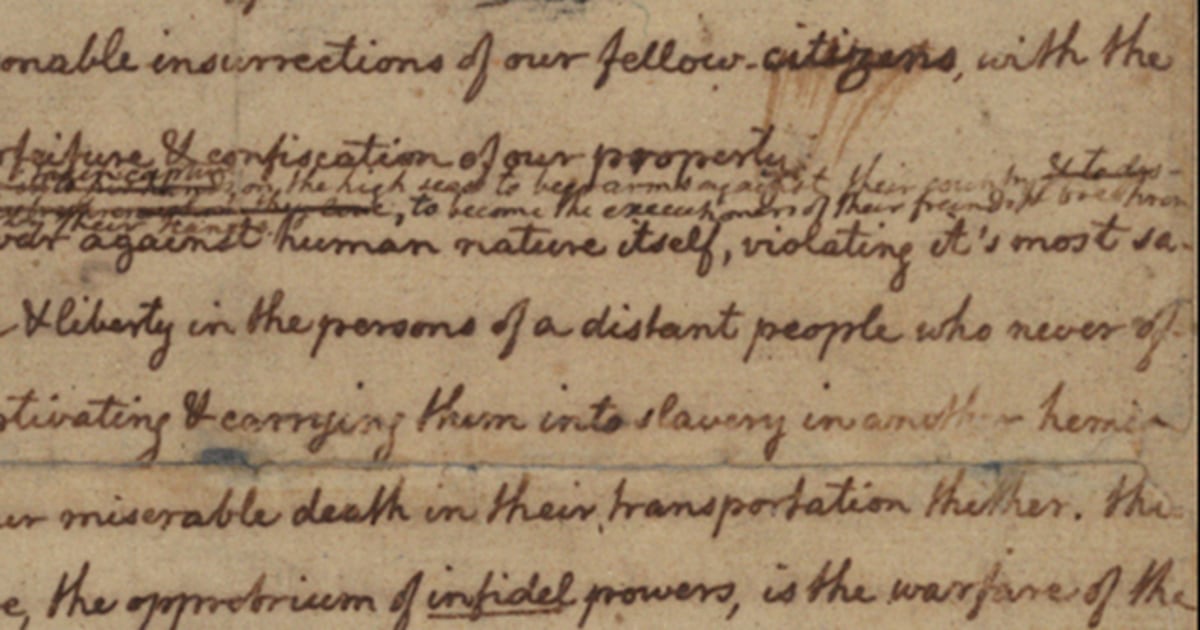 onable insurrections of our fellow-citizens, with the
orfeiture & confiscation of our property
taken captive on the high seas to bear arms against their country & to des-
, to become the executioners of their friends & brethren
their hands.
war against human nature itself, violating it's most sa-
& liberty in the persons of a distant people who never of-
ptivating & carrying them into slavery in another hemis
ur miserable death in their transportation thither. this
e, the opprobrium of infidel powers, is the warfare of the